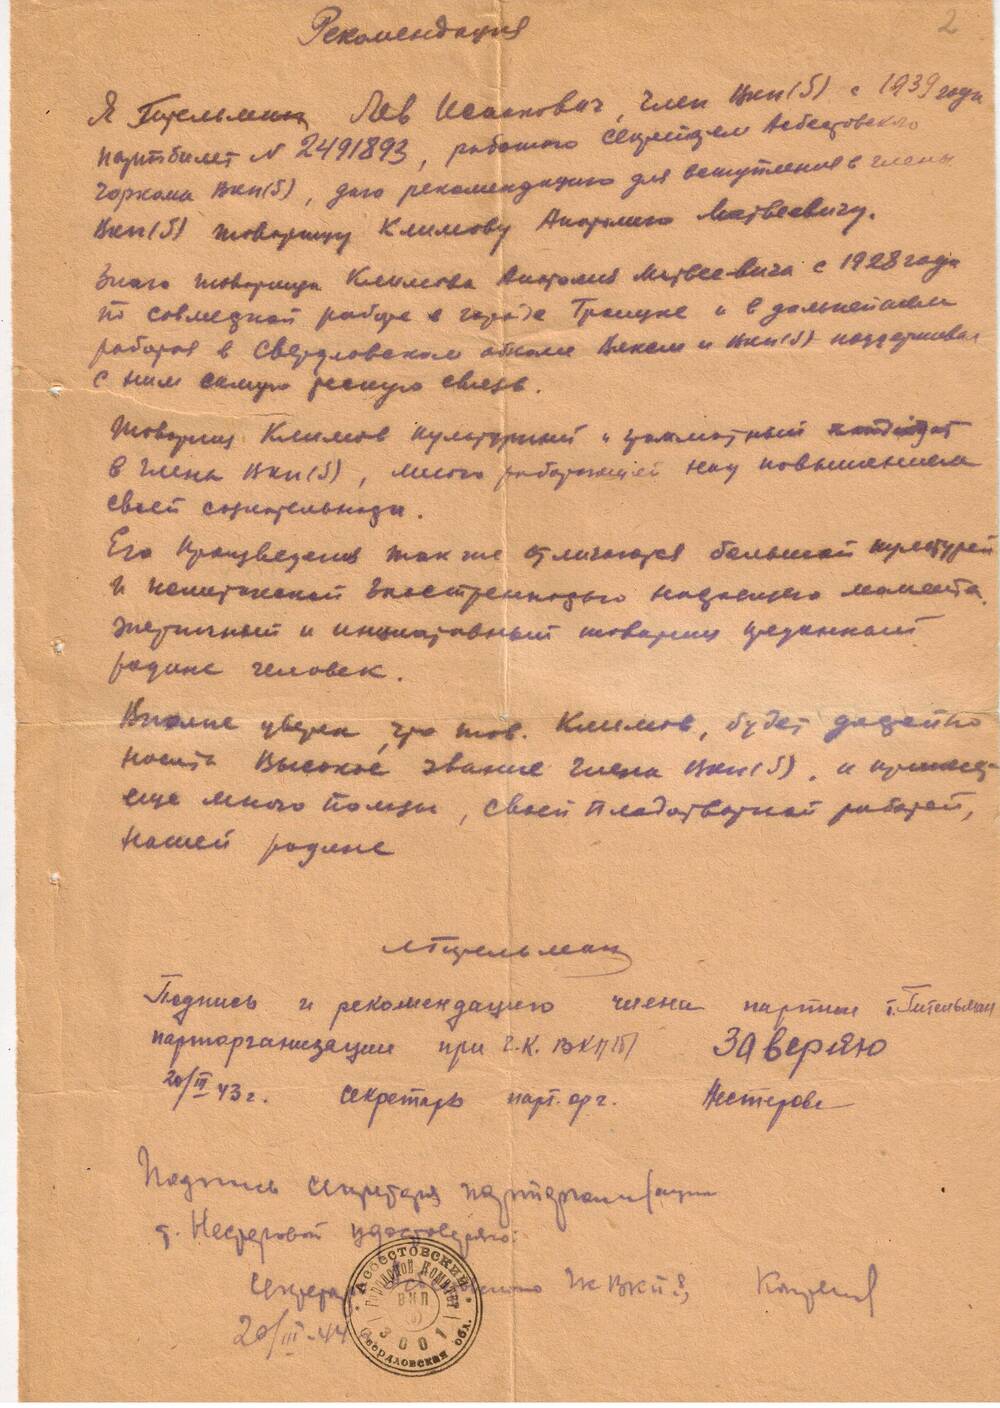 2
Рекомендация
Я Гительман Лев Исаакович, член ВКП(б) с 1939 года
партбилет № 2491893, работаю секретарем Асбестовского
горкома ВКП(б), даю рекомендацию для вступления в члены
ВКП(б) товарищу Климову Анатолию Матвеевичу.
Знаю товарища Климова Анатолия Матвеевича с 1928 года
по совместной работе в городе Троицке и в дальнейшем
работая в Свердловском обкоме и ВКП(б) поддерживал
с ним самую тесную связь.
Товарищ Климов культурный и грамотный кандидат
в члены ВКП(б), много работающий над повышением
своей
Его произведения так же отличаются большой культурой
и политической настоящего момента.
Энергичный и инициативный товарищ преданный
родине человек.
Вполне уверен, что тов. Климов, будет достойно
носить высокое звание члена ВКП(б), и принесет
еще много пользы, своей плодотворной работой,
нашей родине
Гительман
Подпись и рекомендацию члена партии т. Гительман
парторганизации при Г.К. ВКП(б) заверяю
20/III 43 г. секретарь парт. орг. Нестерова
Подпись секретаря парторганизации
т. Нестеровой удостоверяю:
Секретарь Асбестовского ГК ВКП(б)
20/III-44
Асбестовский
Городской Комитет
ВКП
(б)
3001
Свердловская обл.